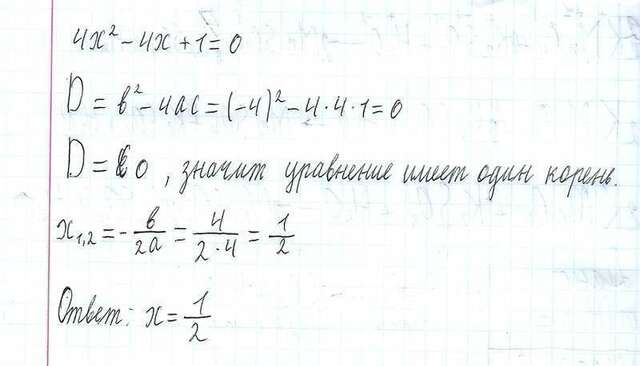 4x² − 4x + 1 = 0
D = b² − 4ac = (−4)² − 4·4·1 = 0
D = 0 , значит уравнение имеет один корень.
x₁,₂ = − b/2a = 4/(2·4) = 1/2
Ответ: x = 1/2